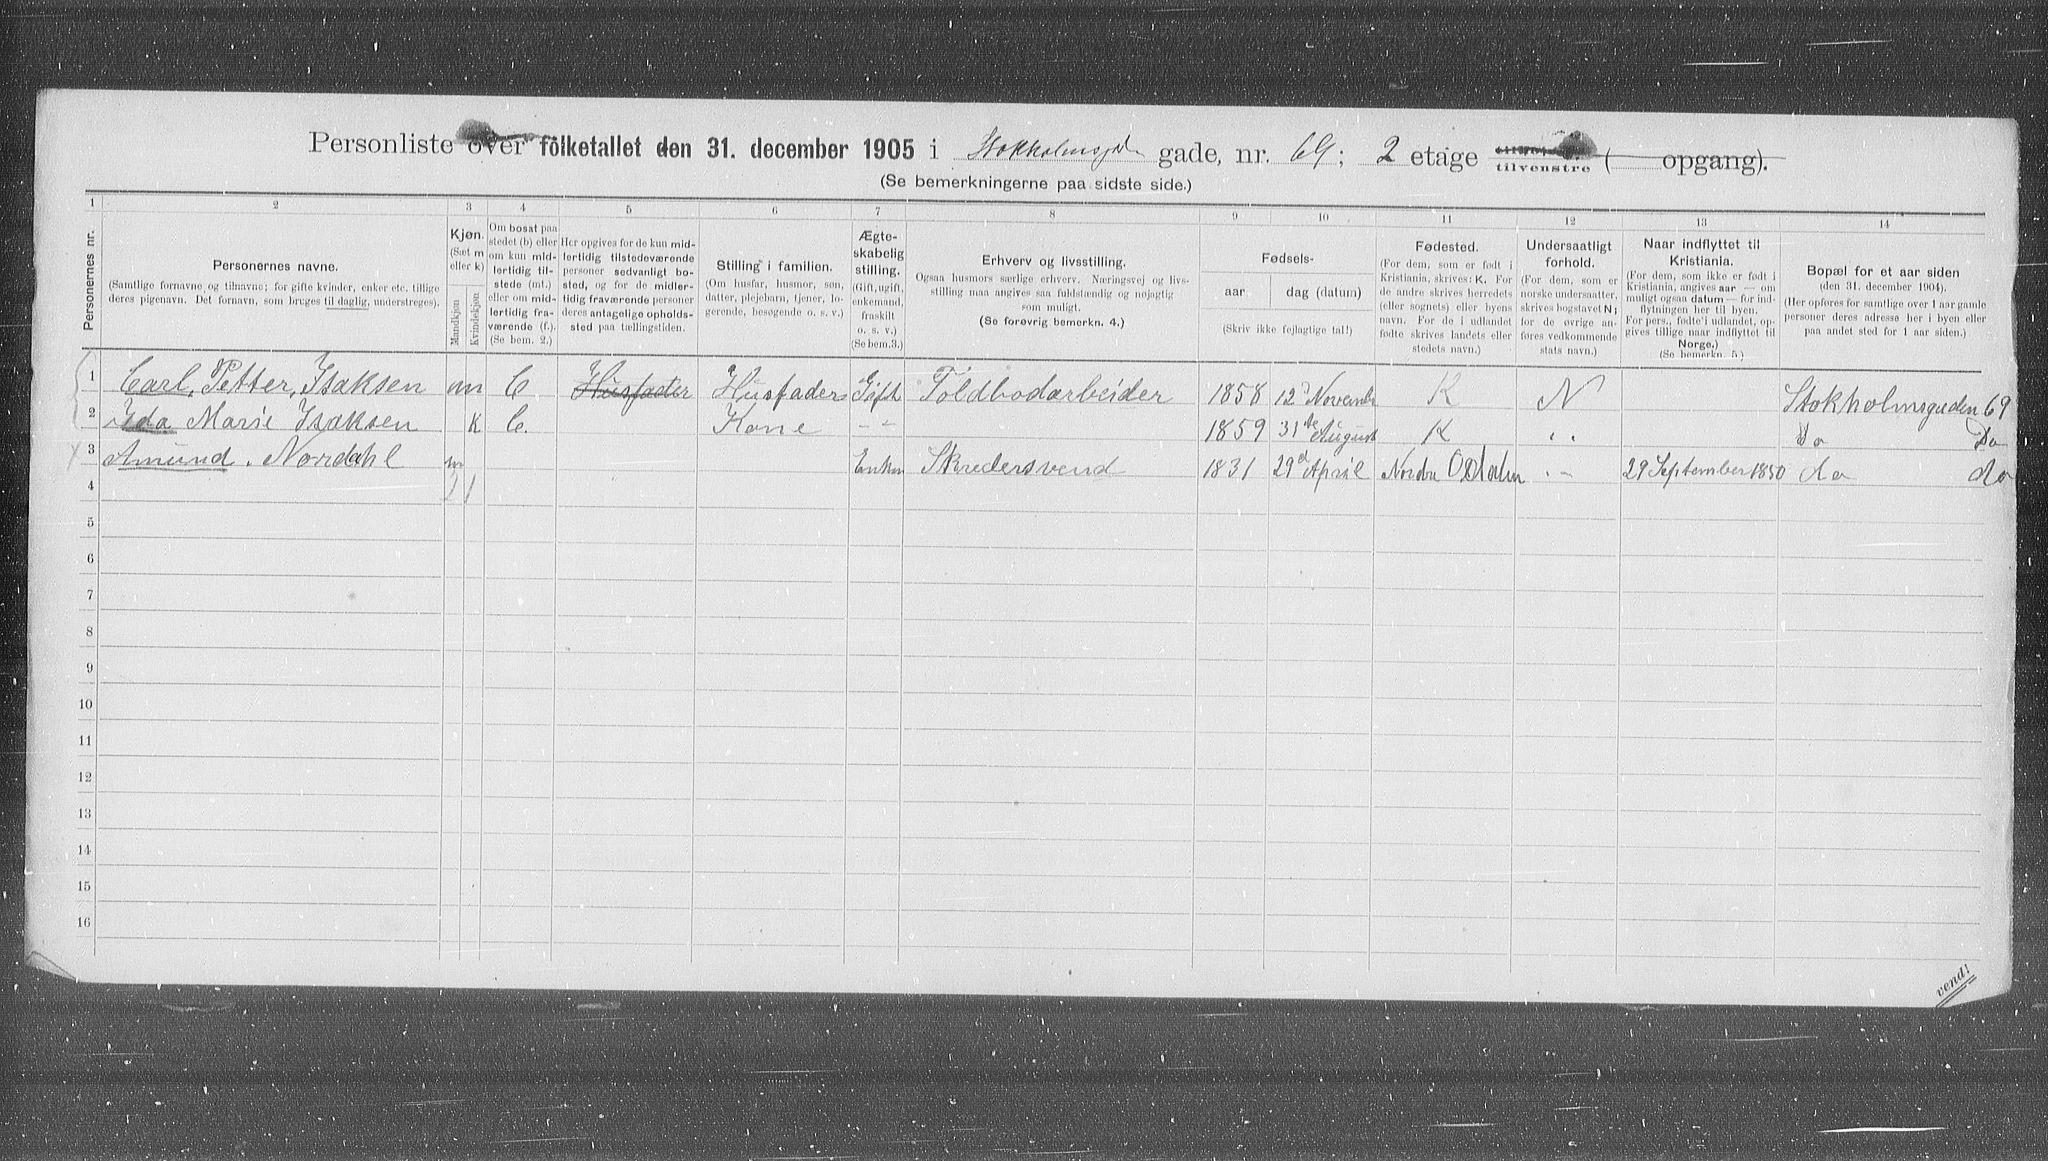 Personliste over folketallet den 31. december 1905 i Stokholmsgdn gade, nr. 69; 2 etage tilvenstre ( opgang).
(Se bemerkningerne paa sidste side.)
1 2 3 4 5 6 7 8 9 10 11 12 13 14
Personernes nr.
Personernes navne.
(Samtlige fornavne og tilnavne; for gifte kvinder, enker etc. tillige deres pigenavn. Det fornavn, som bruges til daglig, understreges).
Kjøn.
(Sæt m eller k)
Mandkjøn. Kvindekjøn.
Om bosat paa stedet (b) eller om kun midlertidig tilstede (mt.) eller om midlertidig fraværende (f.). (Se bem. 2.)
Her opgives for de kun midlertidig tilstedeværende personer sedvanligt bosted, og for de midlertidig fraværende personer deres antagelige opholdssted paa tællingstiden.
Stilling i familien.
(Om husfar, husmor, søn, datter, plejebarn, tjener, logerende, besøgende o. s. v.)
Ægteskabelig stilling.
(Gift, ugift, enkemand, fraskilt o. s. v.)
(Se bem.3.)
Erhverv og livsstilling.
Ogsaa husmors særlige erhverv. Næringsvej og livsstilling maa angives saa fuldstændig og nøjagtig som muligt.
(Se forøvrig bemerkn. 4.)
Fødsels-
aar dag (datum)
(Skriv ikke fejlagtige tal!)
Fødested.
(For dem, som er født i Kristiania, skrives: K. For de andre skrives herredets (eller sognets) eller byens navn. For de i udlandet fødte skrives landets eller stedets navn.)
Undersaatligt forhold.
(For dem, som er norske undersaatter, skrives bogstavet N; for de øvrige anføres vedkommende stats navn.)
Naar indflyttet til Kristiania.
(For dem, som ikke er født i Kristiania, angives aar — om muligt ogsaa datum — for indflytningen her til byen. For pers., fødte i udlandet, opgives tillige naar indflyttet til Norge.)
(Se bemerkn. 5.)
Bopæl for et aar siden
(den 31. december 1904.)
(Her opføres for samtlige over 1 aar gamle personer deres adresse her i byen eller paa andet sted for 1 aar siden.)
1 Carl, Petter, Isaksen m b Husfader Husfader Gift Toldbodarbeider 1858 12 November K N Stokholmsgaden 69
2 Ida Marie Isaksen K b. Kone - - 1859 31te August K . . Do Do
3 Amund. Nordahl m Enkem Skredersvend 1831 29d April Nordre Odalen . - 29 September 1850 do do
4 2 1
5
6
7
8
9
10
11
12
13
14
15
16
vend!